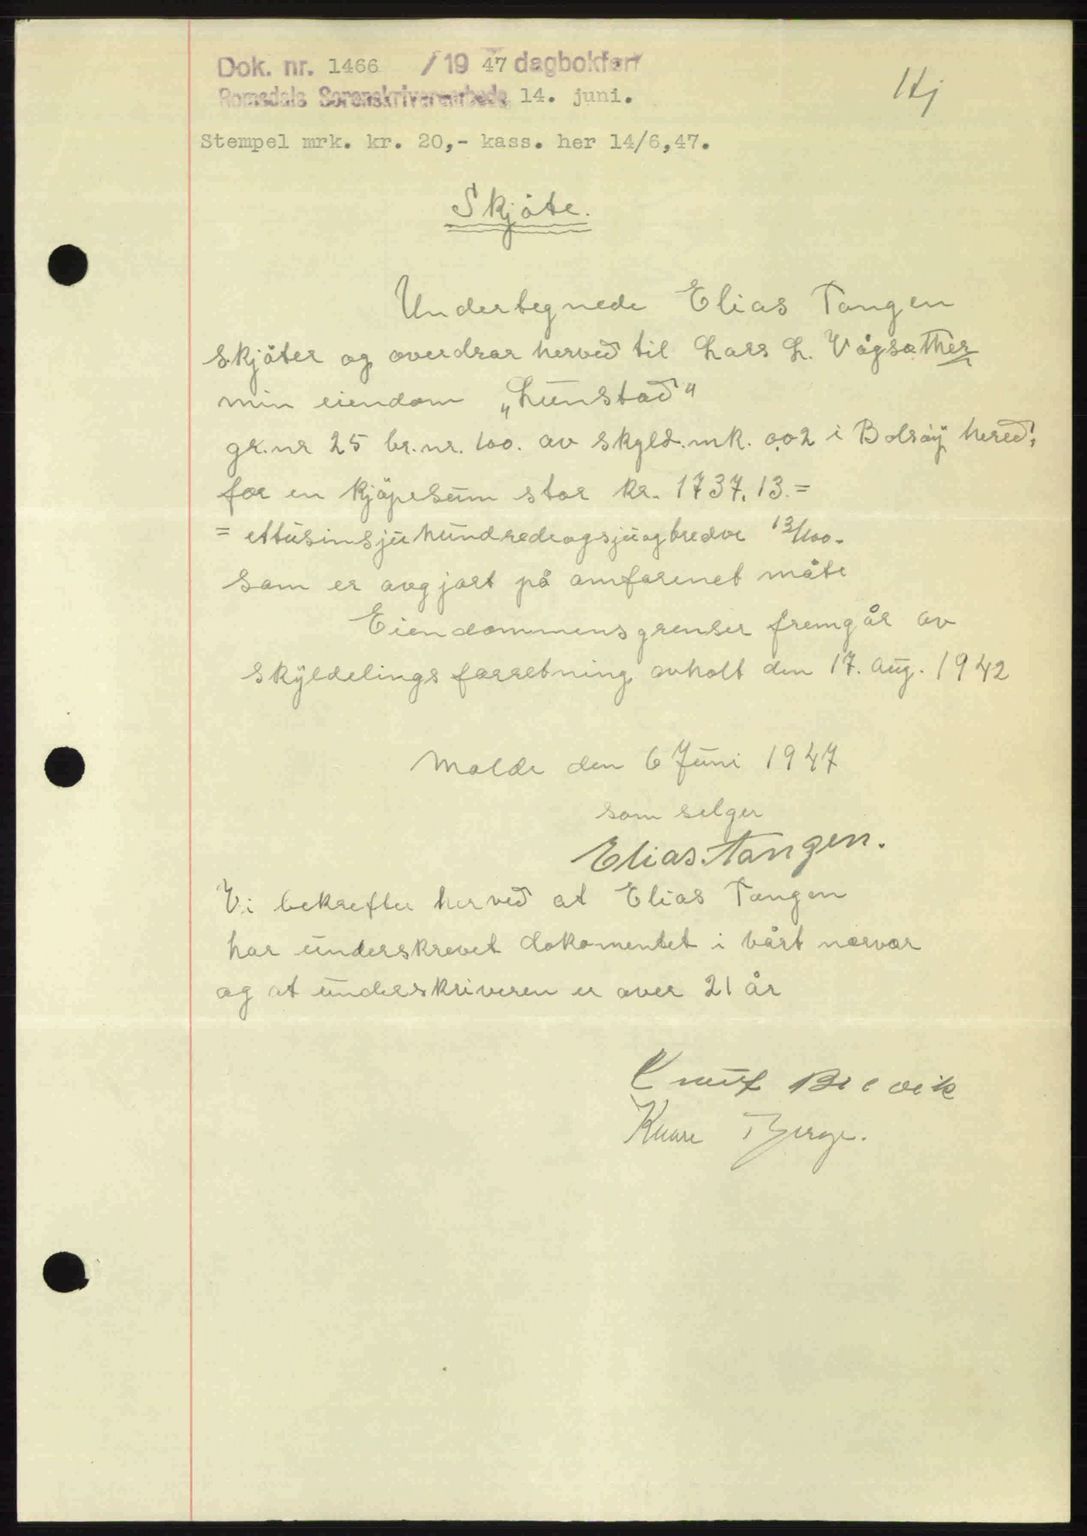 Dok. nr. 1466 / 19 47 dagbokført
Romsdals Sorenskriverembede 14. juni.
Hj
Stempel mrk. kr. 20,- kass. her 14/6,47.
Skjöte.
Undertegnede Elias Tangen
skjöter og overdrar herved til Lars L. Vågsæther
min eiendom „Lunstad"
gr.nr 25 br.nr. 100. av skyld.mk. 0,02 i Bolsöy hered;
for en kjöpesum stor kr. 1737,13.=
= ettusinsjuhundredeogsjuogtredve 13/100-
som er avgjort på omforenet måte
Eiendommens grenser fremgår av
skyldelings forretning avholt den 17. Aug. 1942
Molde den 6 Juni 1947
som selger
Elias Tangen.
Vi bekrefter herved at Elias Tangen
har underskrevet dokomentet i vårt nærvær
og at underskriveren er over 21 år
Knut Brevik
Kaare Berge.